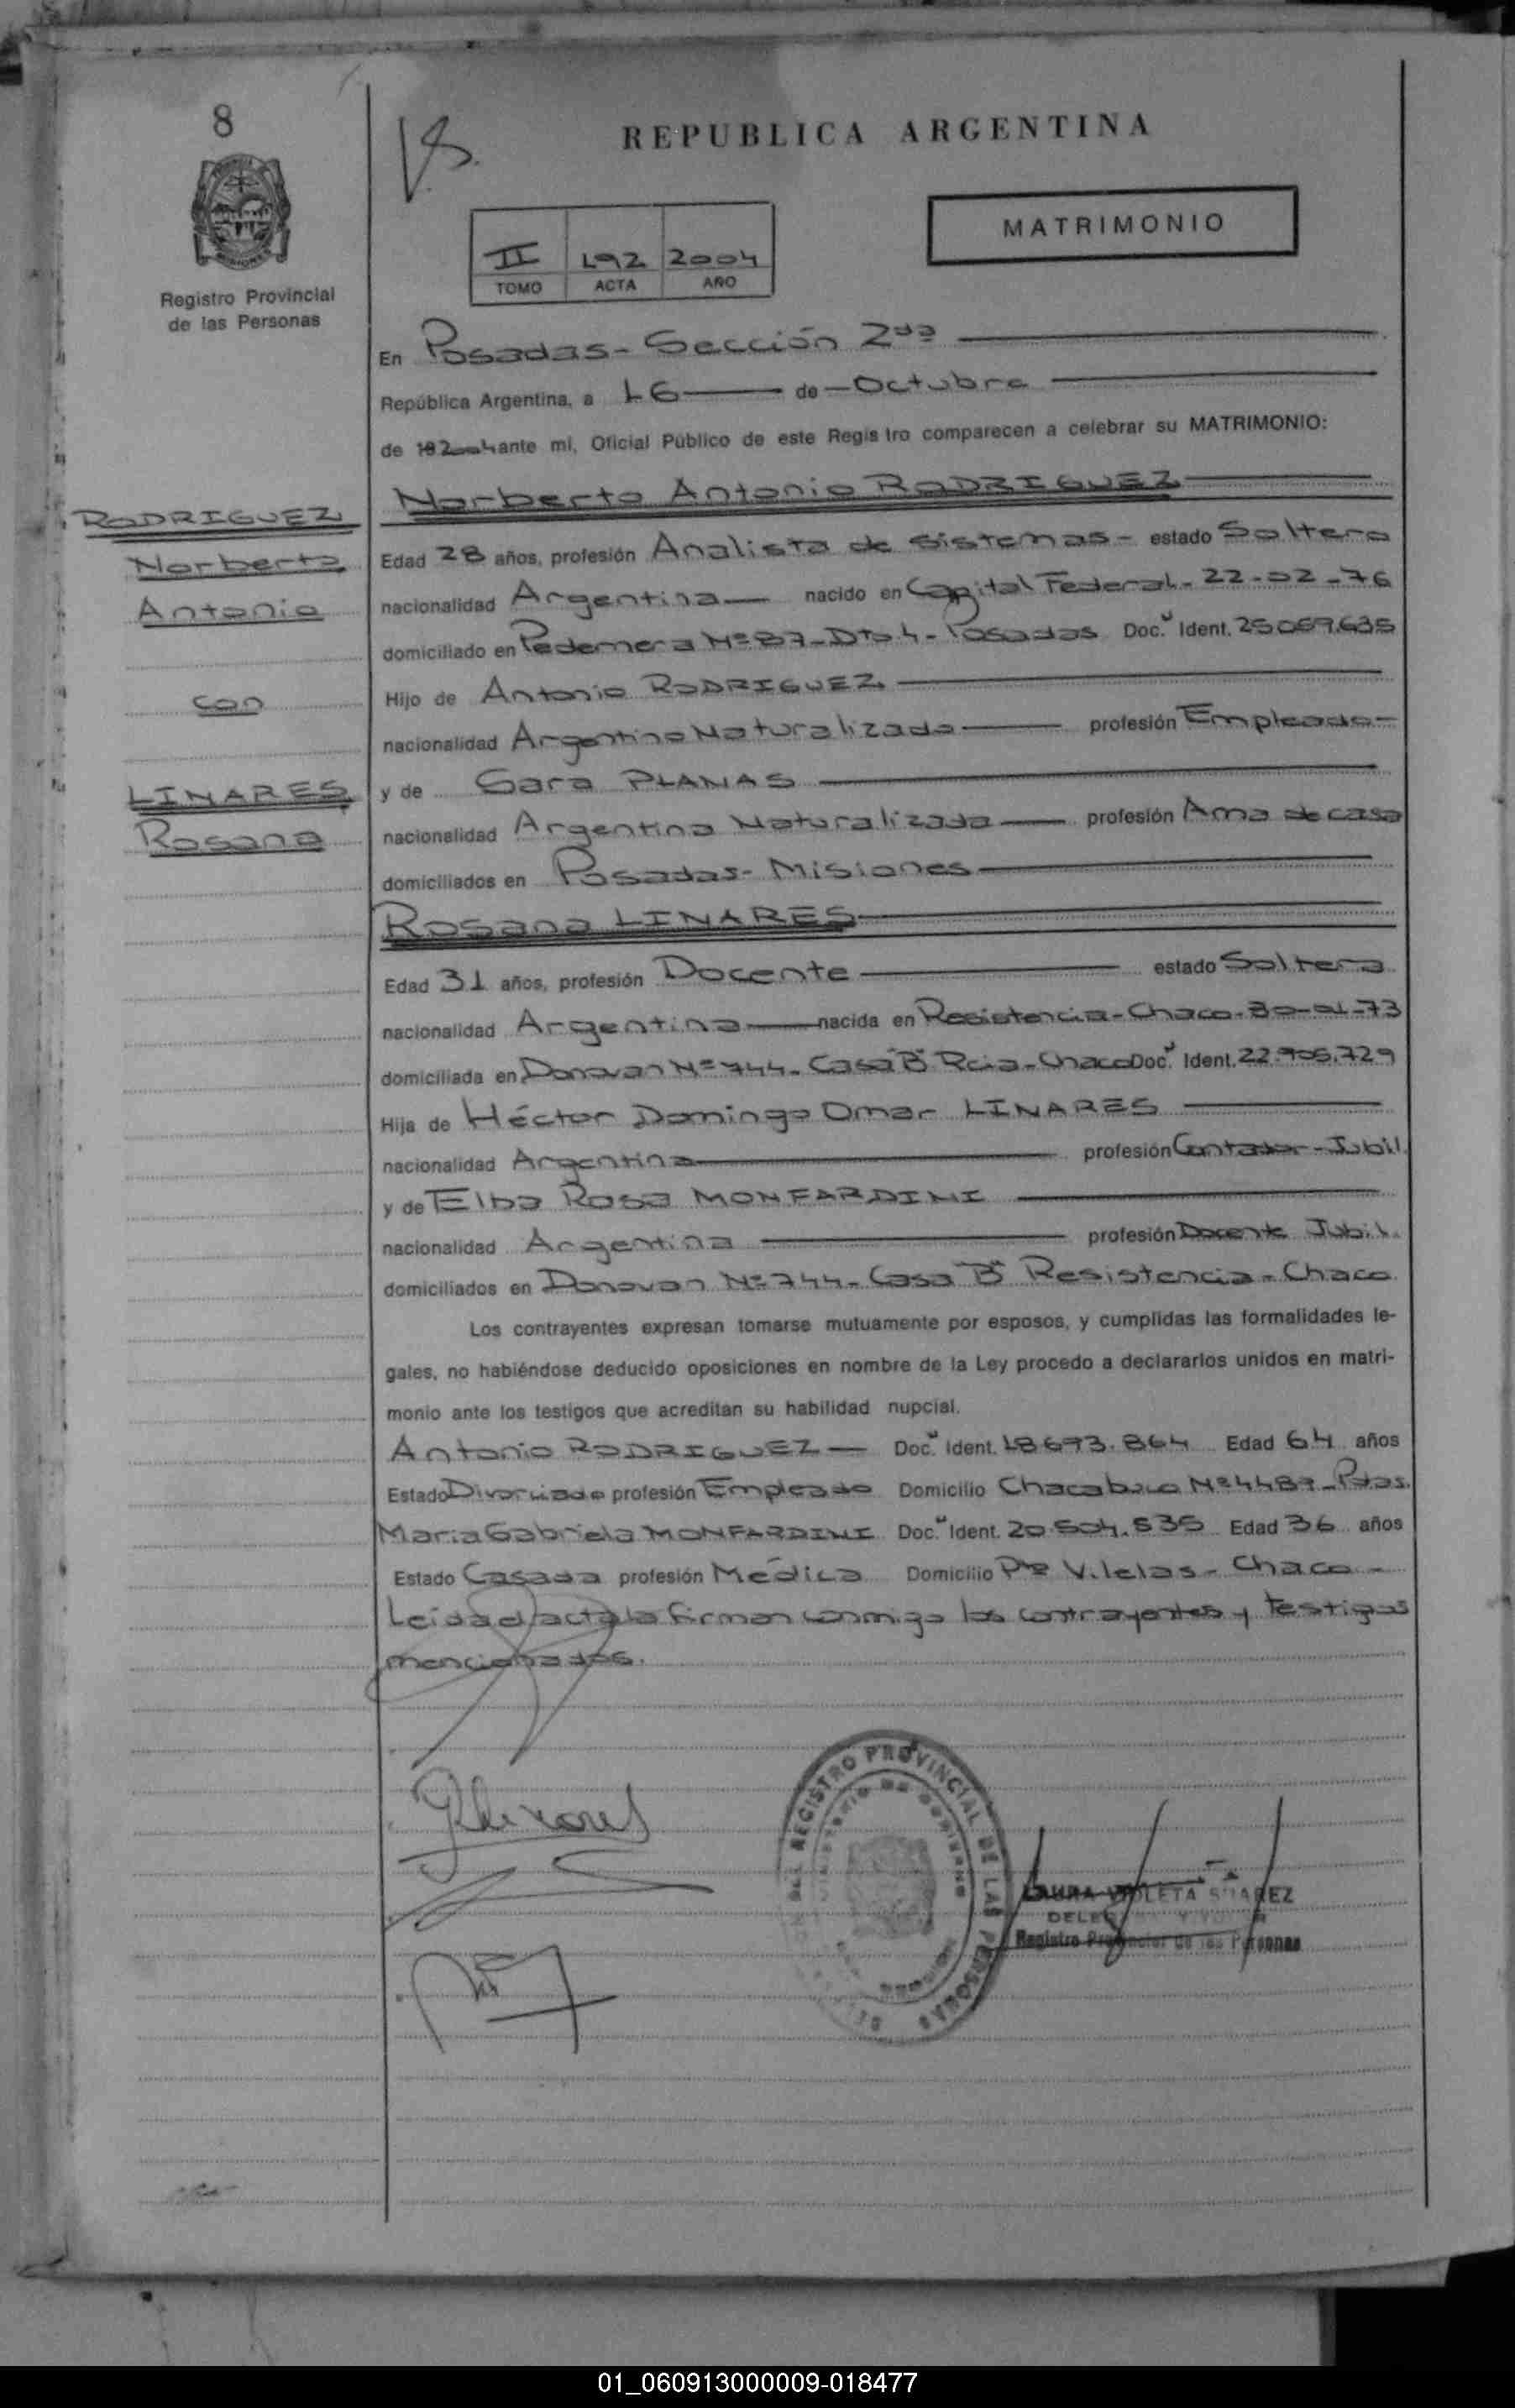 8
REPUBLICA ARGENTINA
MATRIMONIO
II 192 2004
TOMO ACTA AÑO
Registro Provincial
de las Personas
En Posadas - Sección 2da
República Argentina, a 16 de Octubre
de 192004 ante mí, Oficial Público de este Registro comparecen a celebrar su MATRIMONIO:
Norberto Antonio RODRIGUEZ
RODRIGUEZ
Norberto
Antonio
con
LINARES,
Rosana
Edad 28 años, profesión Analista de Sistemas - estado Soltero
nacionalidad Argentina nacido en Capital Federal - 22-02-76
domiciliado en Pedernera Nº 87 - Dto. 4 - Posadas Doc. Ident. 25.069.635
Hijo de Antonio RODRIGUEZ
nacionalidad Argentino Naturalizado profesión Empleado -
y de Sara PLANAS
nacionalidad Argentina Naturalizada profesión Ama de casa
domiciliados en Posadas - Misiones
Rosana LINARES
Edad 31 años, profesión Docente estado Soltera
nacionalidad Argentina nacida en Resistencia - Chaco - 30-01-73
domiciliada en Donovan Nº 744 - Casa "B" Rcia - Chaco Doc. Ident. 22.906.729
Hija de Héctor Domingo Omar LINARES
nacionalidad Argentina profesión Contador - Jubil.
y de Elba Rosa MONFARDINI
nacionalidad Argentina profesión Docente Jubil.
domiciliados en Donovan Nº 744 - Casa "B" Resistencia - Chaco
Los contrayentes expresan tomarse mutuamente por esposos, y cumplidas las formalidades le-
gales, no habiéndose deducido oposiciones en nombre de la Ley procedo a declararlos unidos en matri-
monio ante los testigos que acreditan su habilidad nupcial.
Antonio RODRIGUEZ Doc. Ident. 18.693.864 Edad 64 años
Estado Divorciado profesión Empleado Domicilio Chacabuco Nº 4489 - Pdas.
Maria Gabriela MONFARDINI Doc. Ident. 20.504.535 Edad 36 años
Estado Casada profesión Médica Domicilio Pto Vilelas - Chaco -
Leida el acta la firman conmigo los contrayentes y testigos
mencionados.
REGISTRO PROVINCIAL DE LAS PERSONAS
LAURA VIOLETA SUAREZ
Registro Provincial de las Personas
01_060913000009-018477